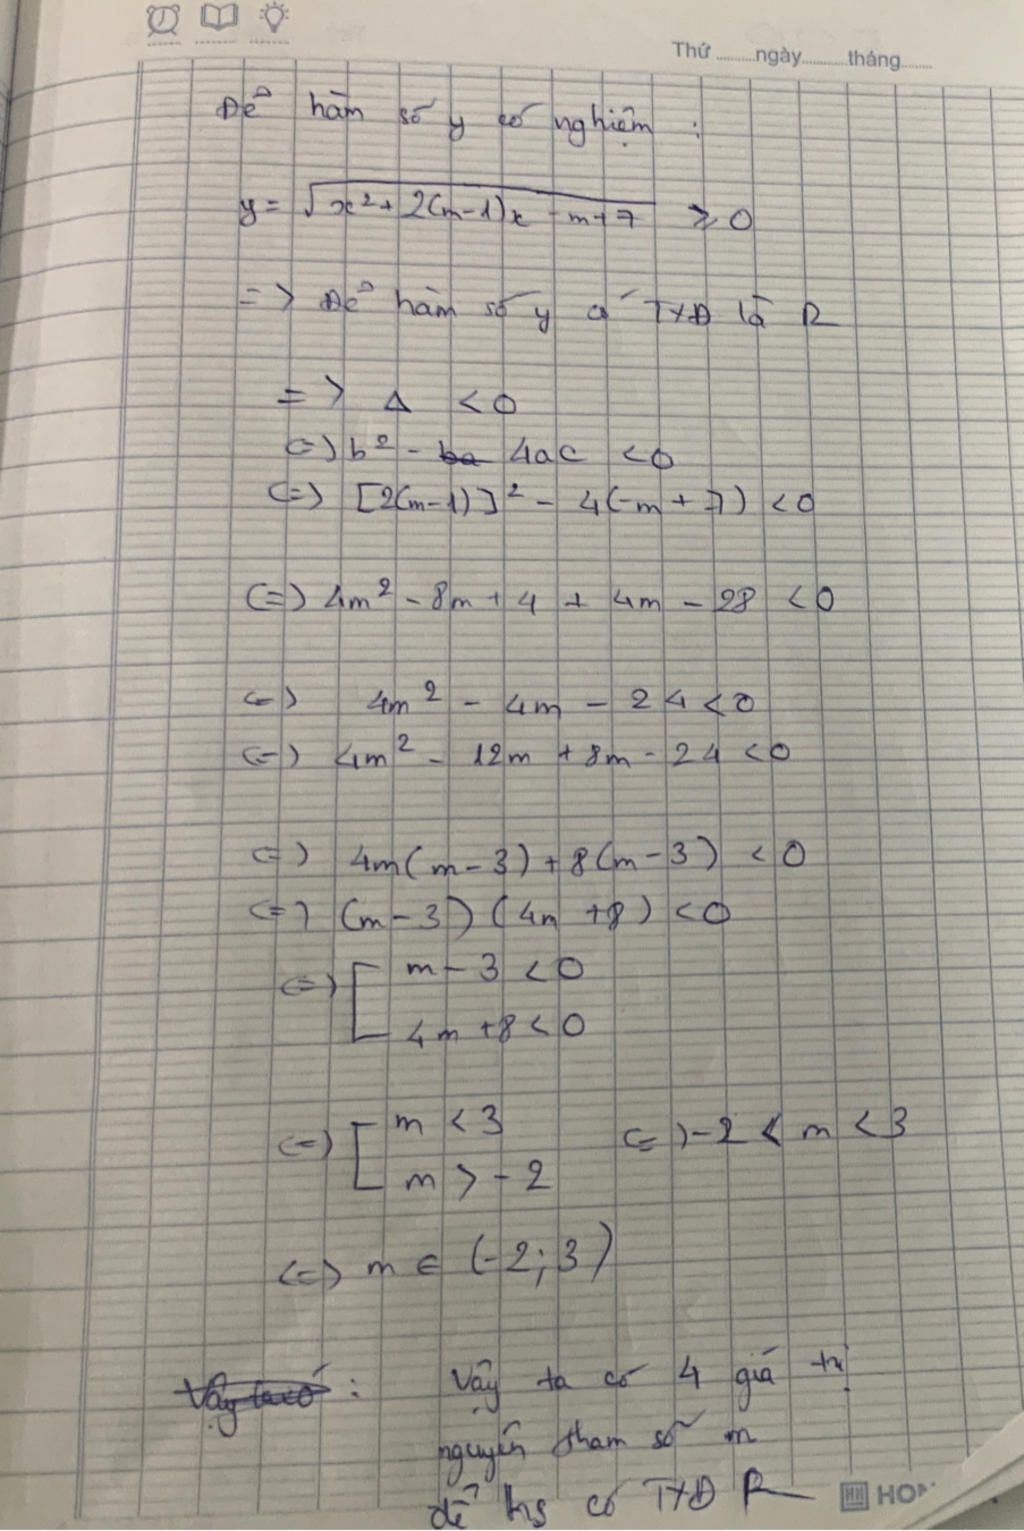 Thứ ........ngày..........tháng........
Để hàm số y có nghiệm :
y = √x² + 2(m-1)x - m+7 ≥ 0
=> Để hàm số y có TXĐ là R
=> Δ < 0
(=) b² - 4ac < 0
(=) [2(m-1)]² - 4(-m + 7) < 0
(=) 4m² - 8m + 4 + 4m - 28 < 0
(=) 4m² - 4m - 24 < 0
(=) 4m² - 12m + 8m - 24 < 0
(=) 4m(m-3) + 8(m-3) < 0
(=) (m-3)(4m+8) < 0
(=) [ m - 3 < 0
4m + 8 < 0
(=) [ m < 3 (=) -2 < m < 3
m > -2
(=) m ∈ (-2; 3)
Vậy ta có : Vậy ta có 4 giá trị
nguyên tham số m
để hs có TXĐ R